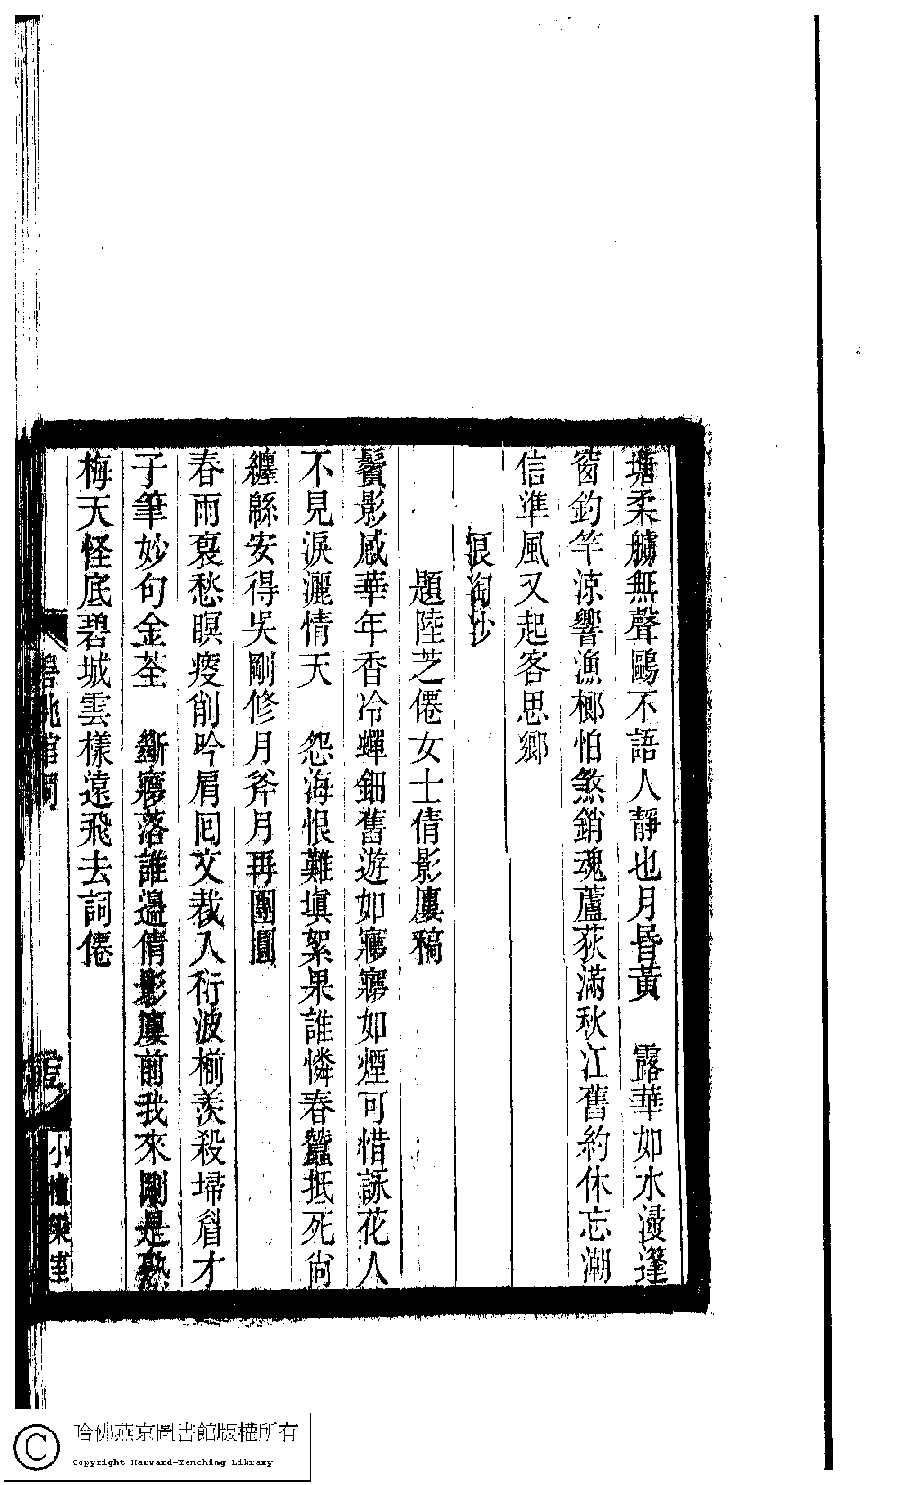 塘柔艣無聲鷗不語人靜也月昏黃　露華如水漫逢
窗釣竿涼響漁榔怕煞銷魂蘆荻滿秋江舊約休忘潮
信準風又起客思鄉
浪淘沙
題陸芝僊女士倩影廔稿
鬢影感華年香冷蟬鈿舊遊如寱寱如煙可惜詠花人
不見淚灑情天　怨海恨難塡絮果誰憐春蠶抵死尙
纏緜安得吳剛修月斧月再團圓
春雨裒愁暝瘦削吟肩囘文裁入衍波椾羨殺埽眉才
子筆妙句金荃　斷寱落誰邊倩影廔前我來剛是熟
梅天怪底碧城雲樣遠飛去詞僊
碧桃館詞
小檀欒室
哈佛燕京圖書館版權所有
Copyright Harvard-Yenching Library